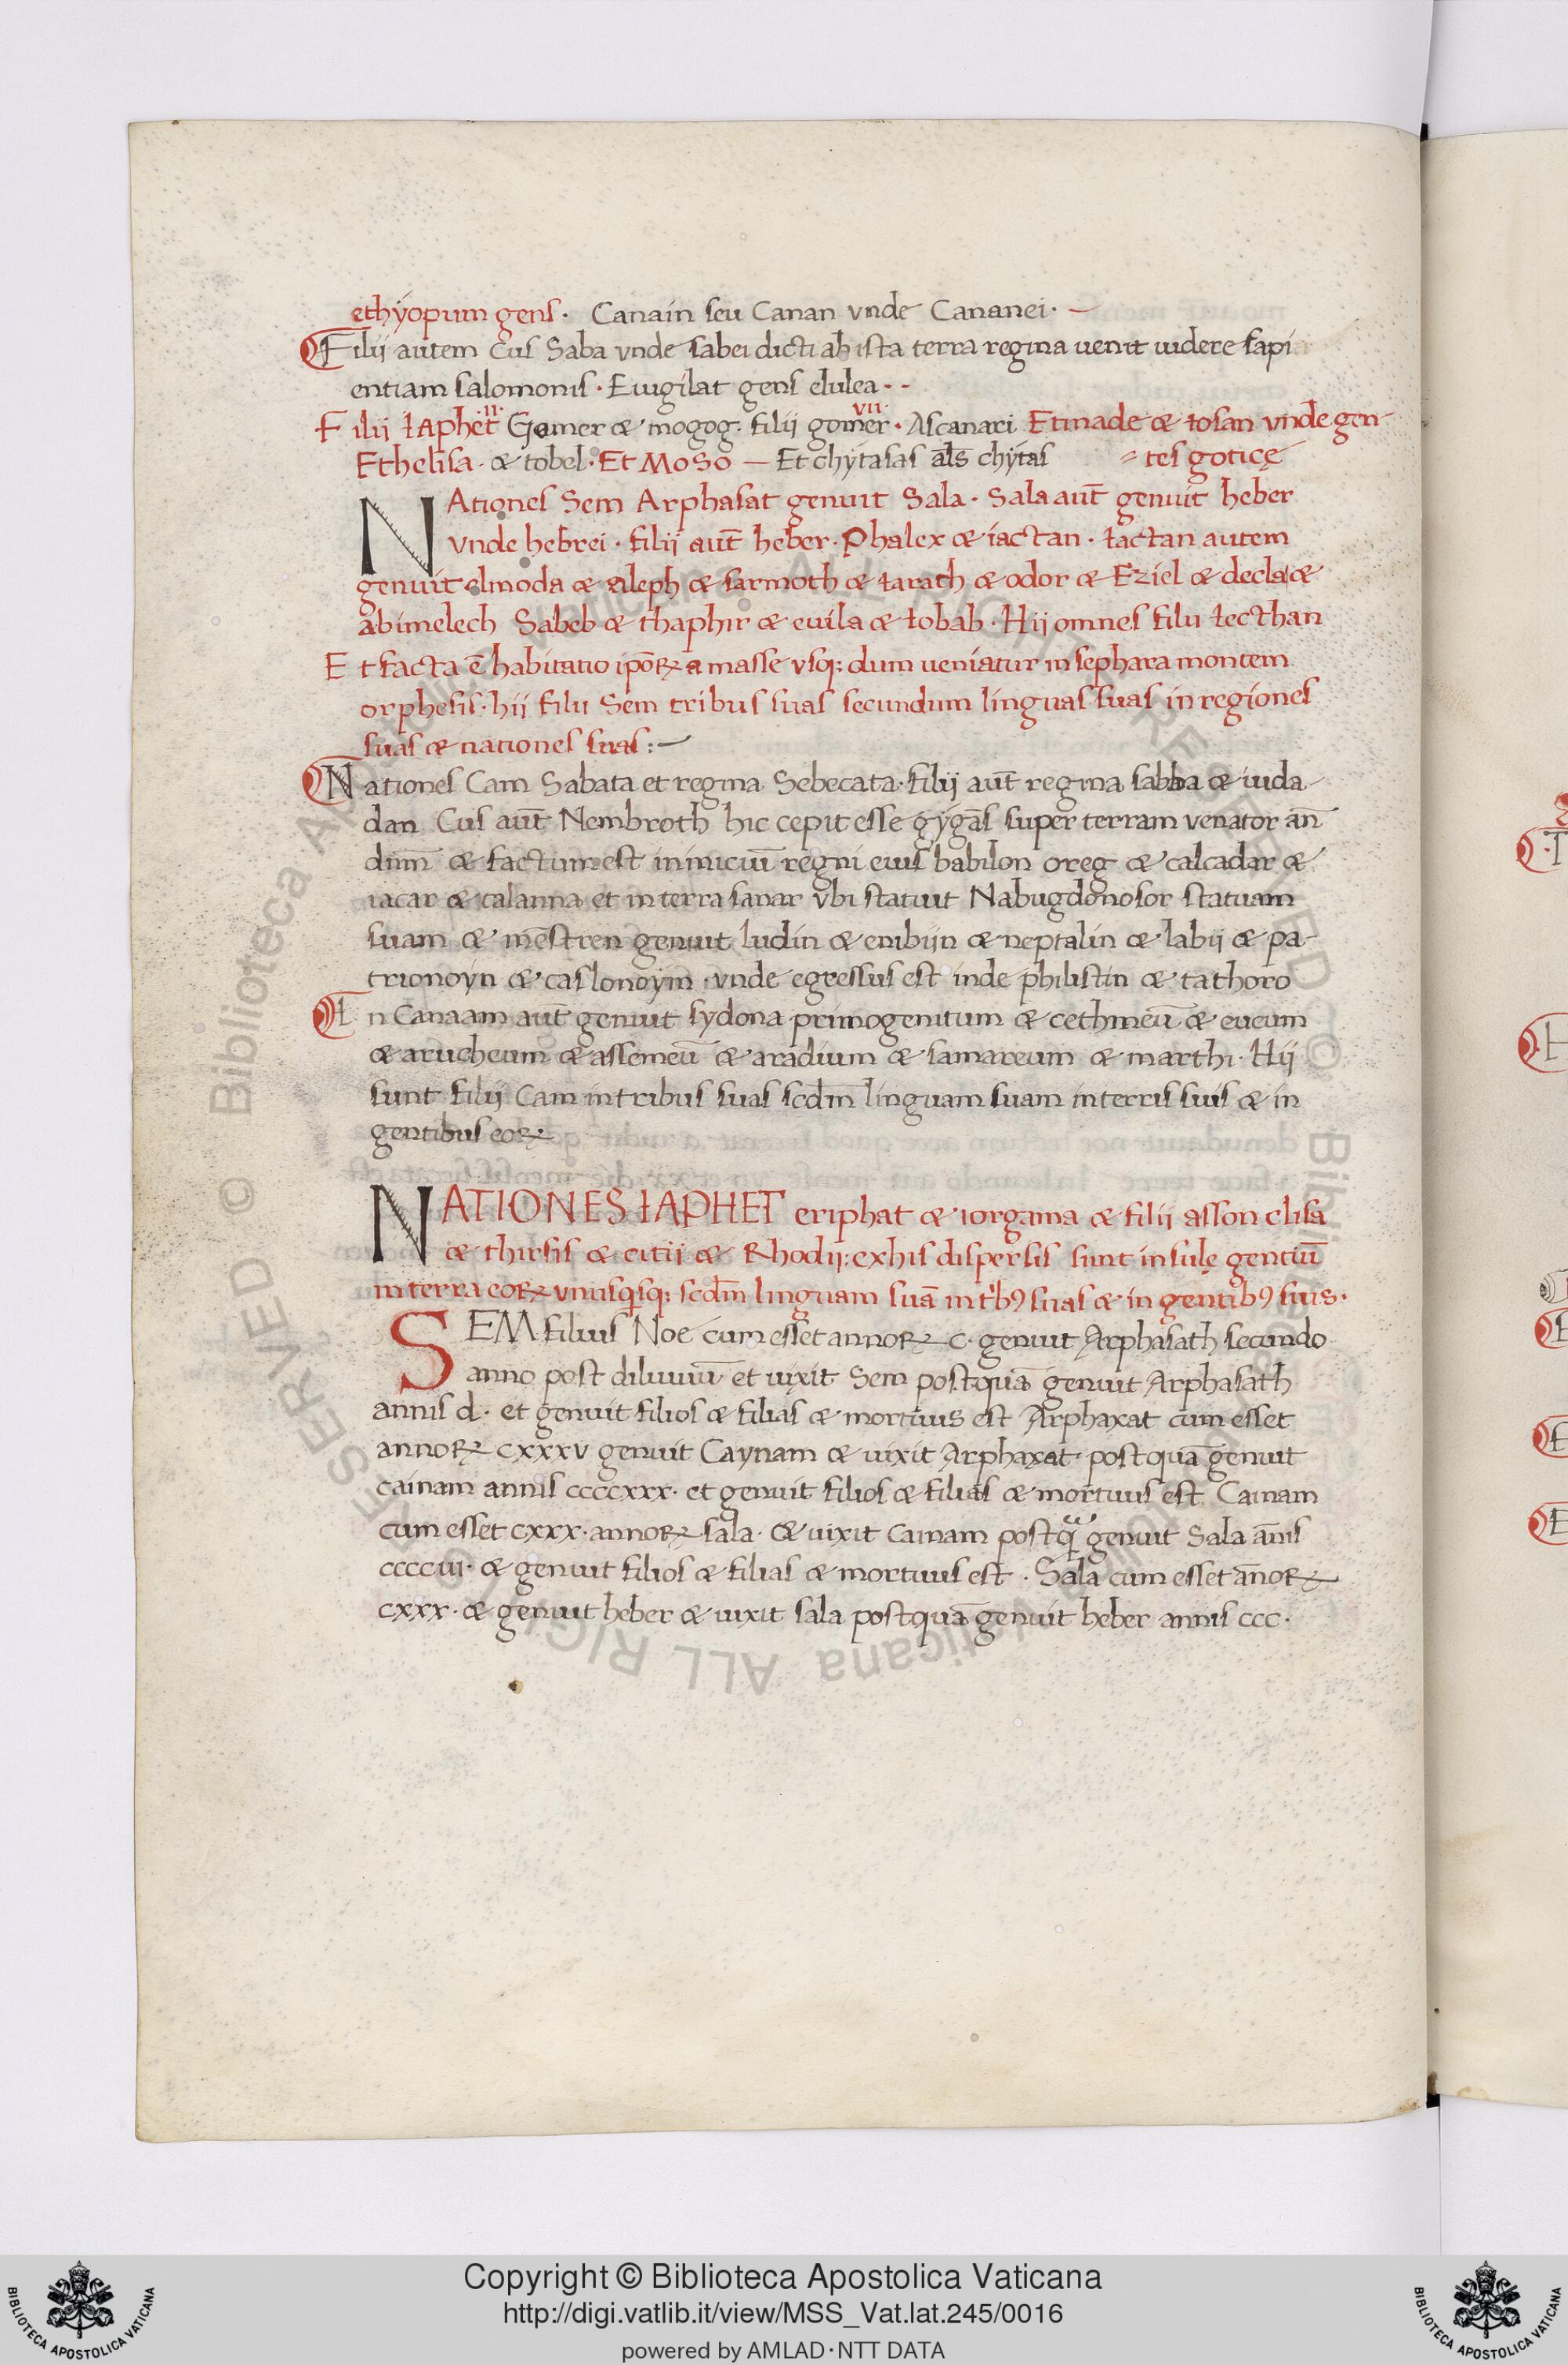 ethẏopum gens · Canain seu Canan vnde Cananei · —
Filii autem cus Saba vnde sabei dicti ab ista terra regina uenit uidere sapi
entiam salomonis · Euigilat gens elulea · -
Filii Iaphet II· Gomer æ mogog · filii gomer VII· · Ascanari Etmade æ Iosan vnde gen-
Et helisa · æ tobel · Et Moso — Et chẏtasas al̄s chẏtas = tes goticę
NAtiones Sem Arphasat genuit Sala · Sala aut̄ genuit heber
vnde hebrei · filij aut̄ heber · Phalex æ iactan · Iactan autem
genuit elmoda æ aleph æ sarmoth æ Iarath æ odor æ Eziel æ decla æ
abimelech Sabeb æ thaphir æ euila æ Iobab · Hij omnes filii Iecthan
Et facta ē habitatio ip̄oꝝ a masse vsq; dum ueniatur in sephara montem
orphesis · hii filii Sem tribus suas secundum linguas suas in regiones
suas æ nationes suas : —
Nationes Cam Sabata et regina Sebecata · filij aut̄ regina sabba æ iuda
dan Cus aut̄ Nembroth hic cepit esse gẏgās super terram venator an̄
dūm æ factum est in iniciū regni eius babilon oreg æ calcadar æ
iacar æ calanna et in terra sanar vbi statuit Nabugdonosor statuam
suam æ mēstren genuit ludin æ enibijn æ neptalin æ labij æ pa-
trionoẏn æ caslonoẏm · vnde egressus est inde philistin æ tathoro
n Canaam aut̄ genuit sydona primogenitum æ cethmeū æ eucum
æ arucheum æ assemeū æ aradium æ samareum æ marthi · Hij
sunt filij Cam in tribus suas scdm̄ linguam suam in terris suis æ in
gentibus eoꝝ
NATIONES IAPHET eriphat æ iorgama æ filii asson elisa
æ thirsis æ citii æ Rhodij : ex his dispersis sunt insulę gentiū
in terra eoꝝ vnusqͥsq; scdm̄ linguam suā in tͥbꝰ suas æ in gentibꝰ suis ·
SEM filius Noe cum esset annoꝝ c · genuit Arphasath secundo
anno post diluuiū et uixit Sem postquā genuit Arphasath
annis d · et genuit filios æ filias æ mortuus est Arphaxat cum esset
annoꝝ cxxxv genuit Caynam æ uixit Arphaxat · postquā genuit
cainam annis ccccxxx · et genuit filios æ filias æ mortuus est Cainam
cum esset cxxx · annoꝝ sala · æ uixit cainam postqᷓ genuit Sala an̄is
ccccui · æ genuit filios æ filias æ mortuus est · Sala cum esset an̄oꝝ
cxxx · æ genuit heber æ uixit sala postquā genuit heber annis ccc ·
Copyright © Biblioteca Apostolica Vaticana
http://digi.vatlib.it/view/MSS_Vat.lat.245/0016
powered by AMLAD·NTT DATA
BIBLIOTECA APOSTOLICA VATICANA
BIBLIOTECA APOSTOLICA VATICANA